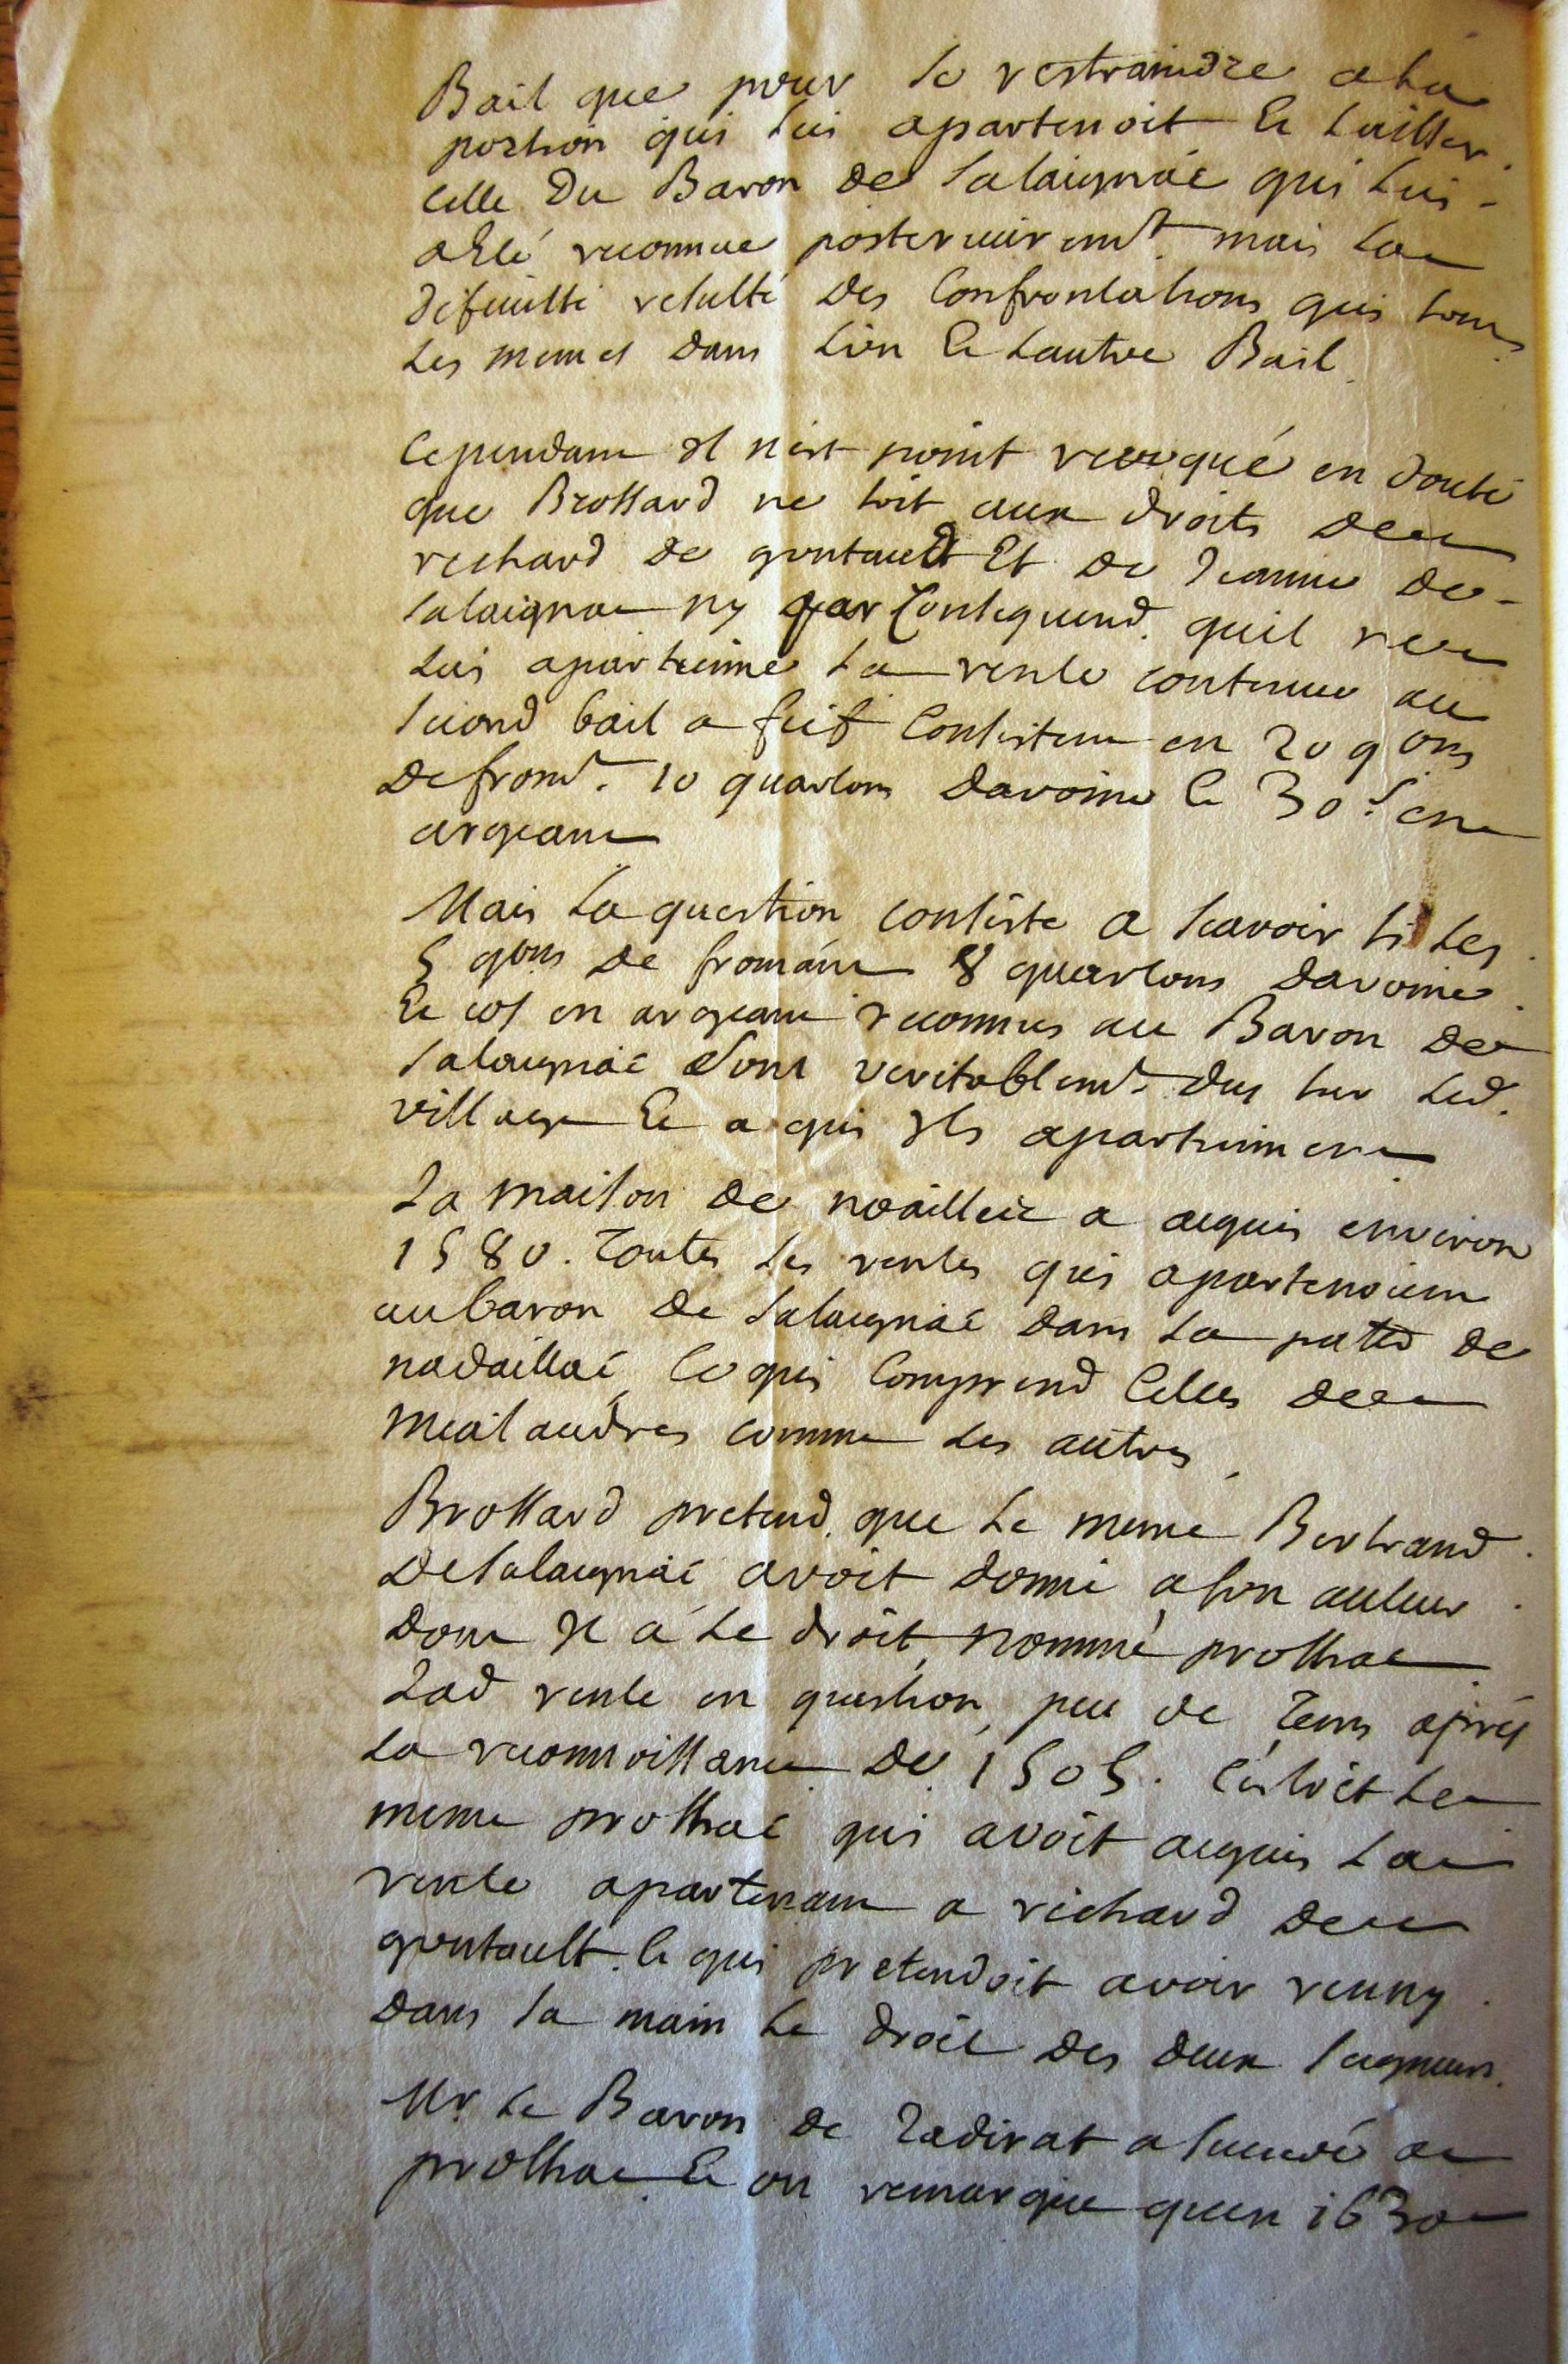 Bail que pour se restraindre a la
portion qui lui apartenoit Et laisser
celle Du Baron de salaignac qui lui
a Eté reconnue posterieuremt. mais la
dificulté resulte des Confrontations qui sont
les memes dans lun Et lautre Bail.
Cependant Il nest point revoqué en doute
que Brossard ne soit aux droits de
richard de gontault Et de Jeanne de
salaignac ny par Consequend. quil ne
lui apartienne la rente contenue au
second bail a fief Consistant en 20 qons
de fromt. 10 quartons davoine Et 30 s en
argeant
Mais la question consiste a scavoir si les
5 qons de fromant 8 quartons davoine
Et 10s en argeant reconnus au Baron de
salaignac sont veritablemt. dus sur led.
village Et a qui Ils apartiennent
La maison de noailles a aquis environ
1580. toutes les rentes qui apartenoient
au baron de salaignac dans la parred de
nadaillac, ce qui Comprend Celles de
mealaudres comme les autres,
Brossard pretend. que le meme Bertrand
de salaignac avoit donné a son auteur
dont Il a le droit, nommé prolhac
lad rente en question, peu de tems aprés
la reconnoissance de 1505. c'estoit le
meme prolhac qui avoit aquis la
rente apartenant a richard de
gontault. Et qui pretendoit avoir reuny
dans sa main le droit des deux seigneurs.
Mr. le Baron de Ladirat a succedé a
prolhac Et on remarque quen 1630